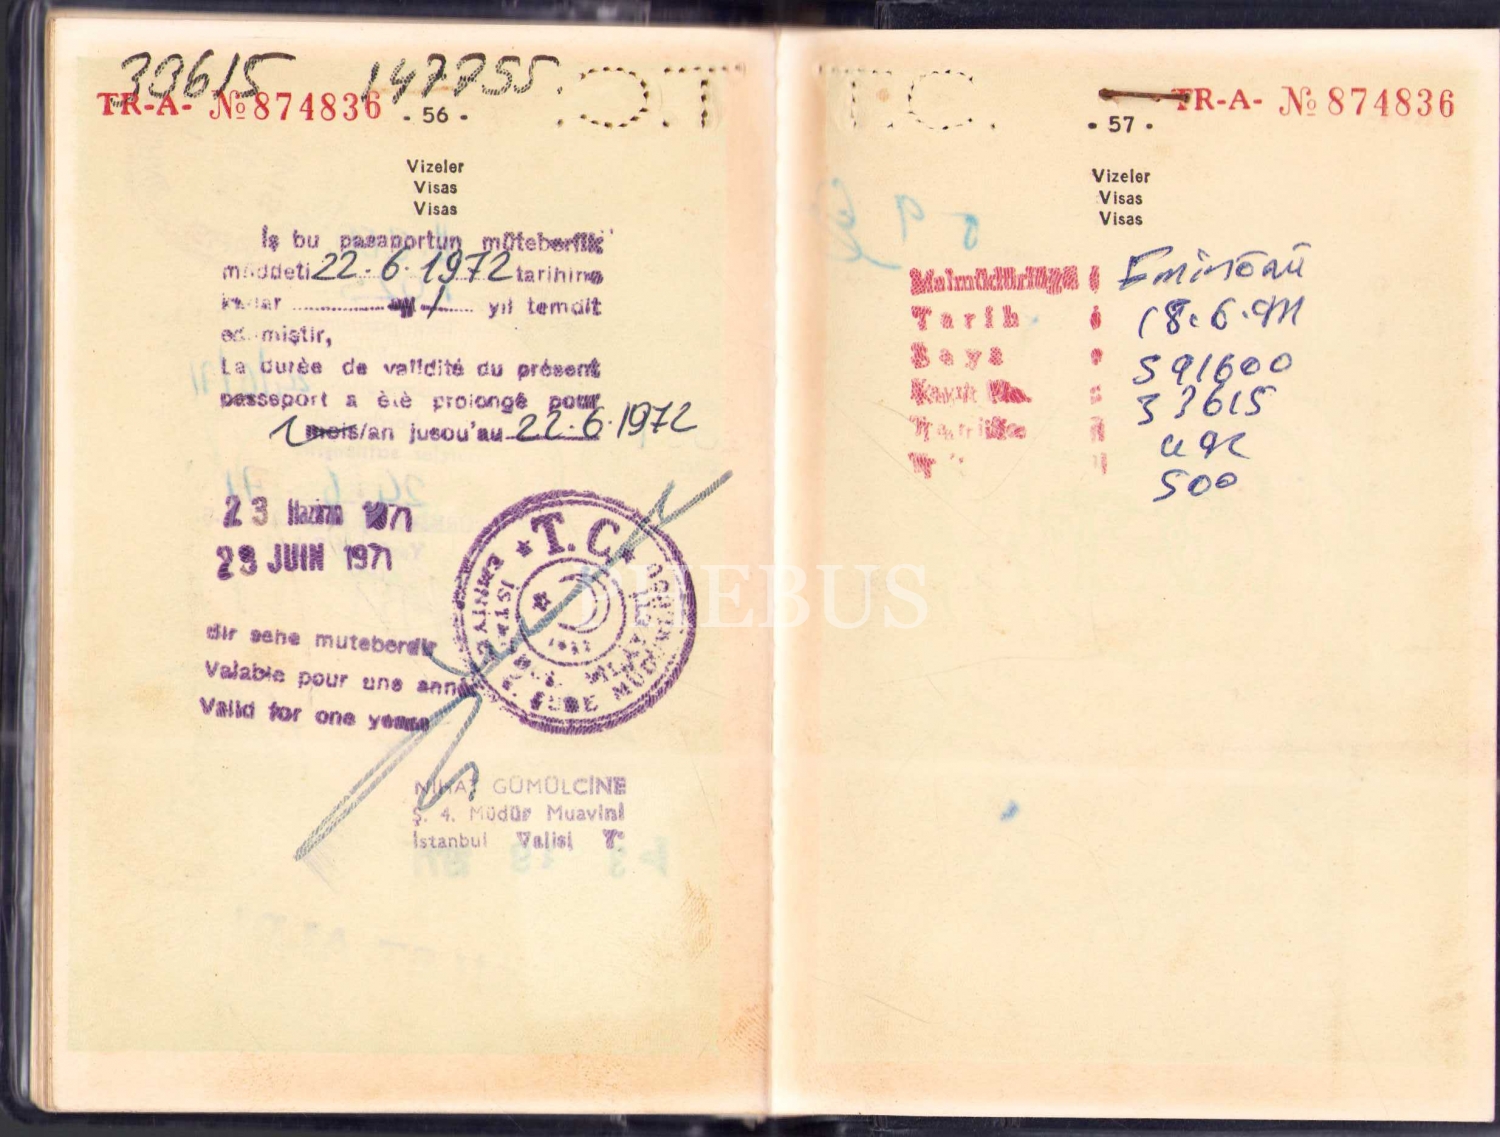 33615 147755.
TR-A- № 874836
. 56 .
T.C.
Vizeler
Visas
Visas
İş bu pasaportun müteberlik
müddeti 22.6.1972 tarihine
kadar ay 1 yıl temdit
edilmiştir,
La durée de validité du présent
passeport a été prolongé pour
1 mois/an jusqu'au 22.6.1972
23 Haziran 1971
23 JUIN 1971
T.C.
1922
dir sene muteberdir
Valable pour une année
Valid for one years
NİHAT GÜMÜLCİNE
Ş. 4. Müdür Muavini
İstanbul Valisi Y.
T.C.
TR-A- № 874836
. 57 .
Vizeler
Visas
Visas
Malmüdürlüğü : Eminönü
Tarih : 18.6.971
Sayı : 591600
33615
500
PHEBUS